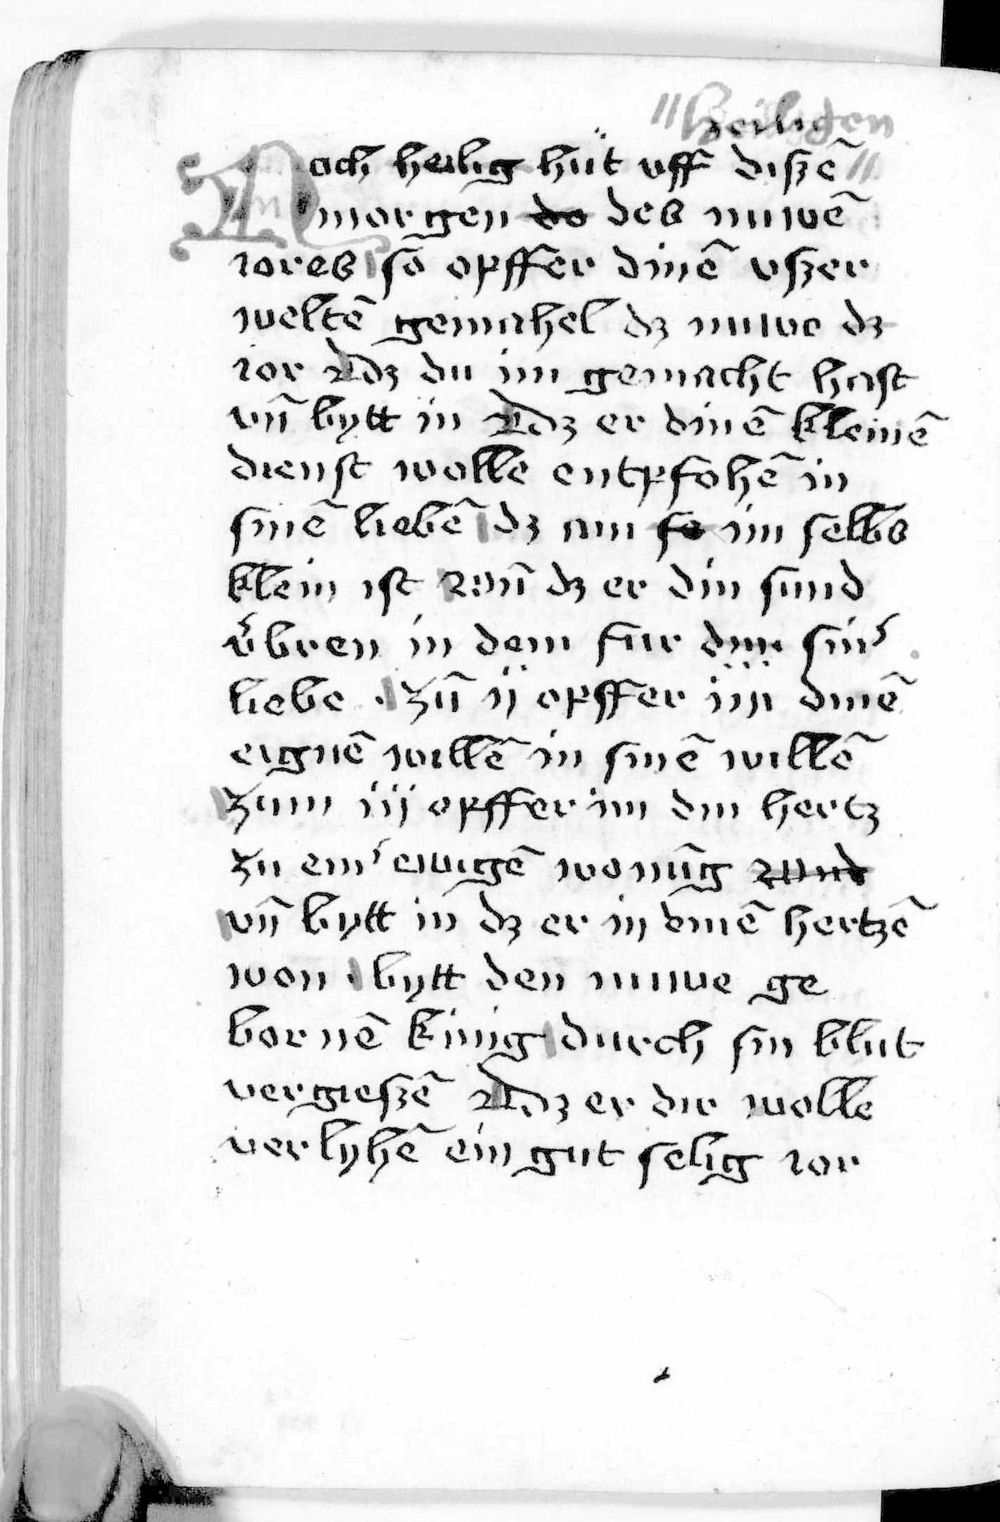 "heiligen
Noch heilig hüt vff diszē "
morgen do des nuwē
iores so opffer dinē vszer
weltē gemahel dz nuwe dz
ior Adz du im gemacht hast
vn̄ bytt in Adz er dinē kleinē
dienst wolle entpfohē in
sinē liebē dz am so im selbs
klein ist Vn̄ dz er din sund
v̊bren in dem fur din sinr
liebe . Zū ij opffer im dinē
eignē willē in sinē willē
Zum iij opffer im din hertz
zu einr ewigē wonūg vnd
vn̄ bytt in dz er in dinē hertzē
won . bytt den nuwe ge
bornē kinig durch sin blut
vergieszē Adz er dir wolle
verlyhē ein gut selig ior